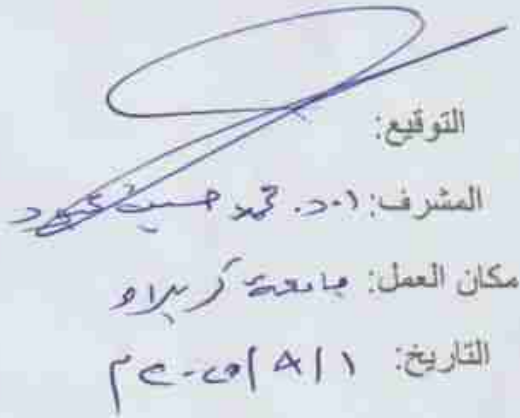 التوقيع:
المشرف: ا.د. محمد حسين عبود
مكان العمل: جامعة كربلاء
التاريخ: ١ / ٨ /